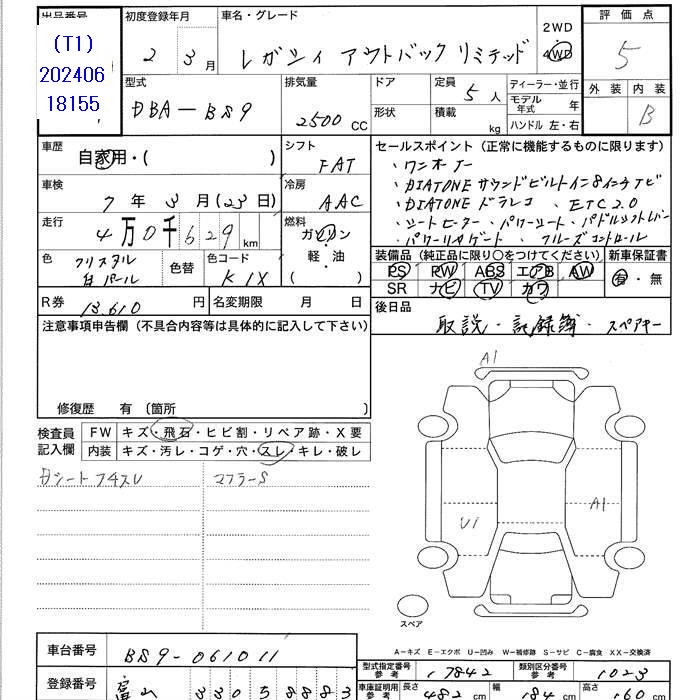 出品番号 初度登録年月 車名・グレード 2WD 評価点
(T1)
202406
18155
2 3月 レガシィ アウトバック リミテッド 4WD 5
型式 排気量 ドア 定員 5人 ディーラー・並行 外装 内装
DBA-BS9 2500 CC 形状 積載 kg モデル年式 年 B
ハンドル 左・右
車歴 自家用・( ) シフト FAT セールスポイント (正常に機能するものに限ります)
・ワンオーナー
車検 7年3月(23日) 冷房 AAC ・DIATONE サウンドビルトイン8インチナビ
・DIATONE ドラレコ ・ETC2.0
走行 4万0千629km 燃料 ガソリン ・シートヒーター ・パワーシート ・パドルシフトレバー
軽・油 ・パワーリヤゲート ・クルーズコントロール
( )
色 クリスタル白パール 色替 色コード K1X 装備品 (純正品に限り○をつけてください) 新車保証書
PS PW ABS エアB AW 有・無
SR ナビ TV カワ
R券 13,610円 名変期限 月 日 後日品
取説・記録簿・スペアキー
注意事項申告欄 (不具合内容等は具体的に記入して下さい)
修復歴 有 (箇所 )
A1
検査員記入欄 FW キズ・飛石・ヒビ割・リペア跡・X要
内装 キズ・汚レ・コゲ・穴・スレ・キレ・破レ
マフラーS
U1 A1
スペア
A-キズ E-エクボ U-凹み W-補修跡 S-サビ C-腐食 XX-交換済
車台番号 BS9-061011 型式指定番号 参考 17842 類別区分番号 参考 1023
登録番号 富山 330 5 8883 車庫証明用 参考 長さ 482cm 幅 184cm 高さ 160cm